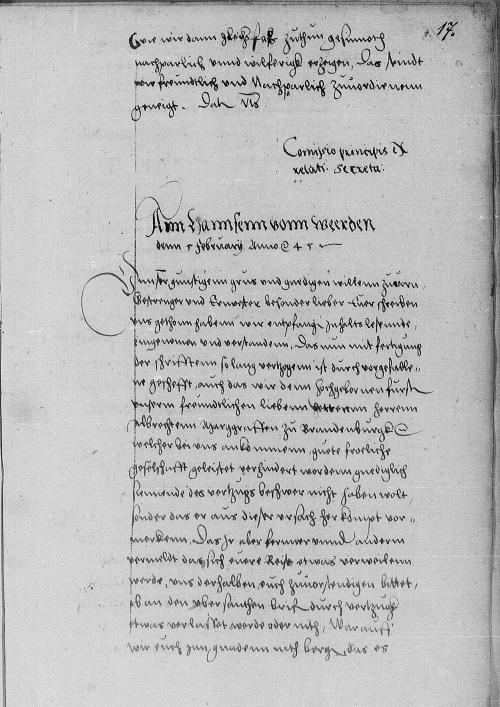 17.
wie wir dann gleichsfals zuthun gesunnet
nachparlich unnd wilferigk ertzeigen, das seindt
wir freundtlich und nachparlich zuuordienenn
geneigt. Dat. uts
Comissio principis ex
relati: Secreta:
Ann Hannsenn vonn Weerden
denn 5 February Anno &c 45
Unnser gunstigenn grus und gnedigen willenn zuuorn
Gestrenger und Ernuester besonder lieber Euer schreiben
uns gethonn habenn wir entpfangen Inhalts lesennde
eingenomen und verstandenn, Das nun mit fertigung
der schrifftenn so lang vertzogenn ist durch vorgefalle=
ne geschefft, auch das wir denn hochgebornen furst
unsern freundtlichen liebenn vetterenn herrenn
Albrechtenn Marggraffen zu Brandenburgk &c
welcher bei uns ankommenn guete froeliche
geselschafft geleistet verhindert wordenn gnediglich
sinnende des vertzugs beschwer nicht haben wolt
sonder das er aus dieser ursach her kompt vor=
mercken. Das Ir aber ferner unnd anderm
vermeldt das sich euere Reise etwas verweilenn
werde, uns derhalben euch zuuorstendigen bittet,
ob an den ubersanthen brif durch vertzugk
etwas verlasset werde oder nith, Warauff
wir euch inn gnadenn nith bergen, das es